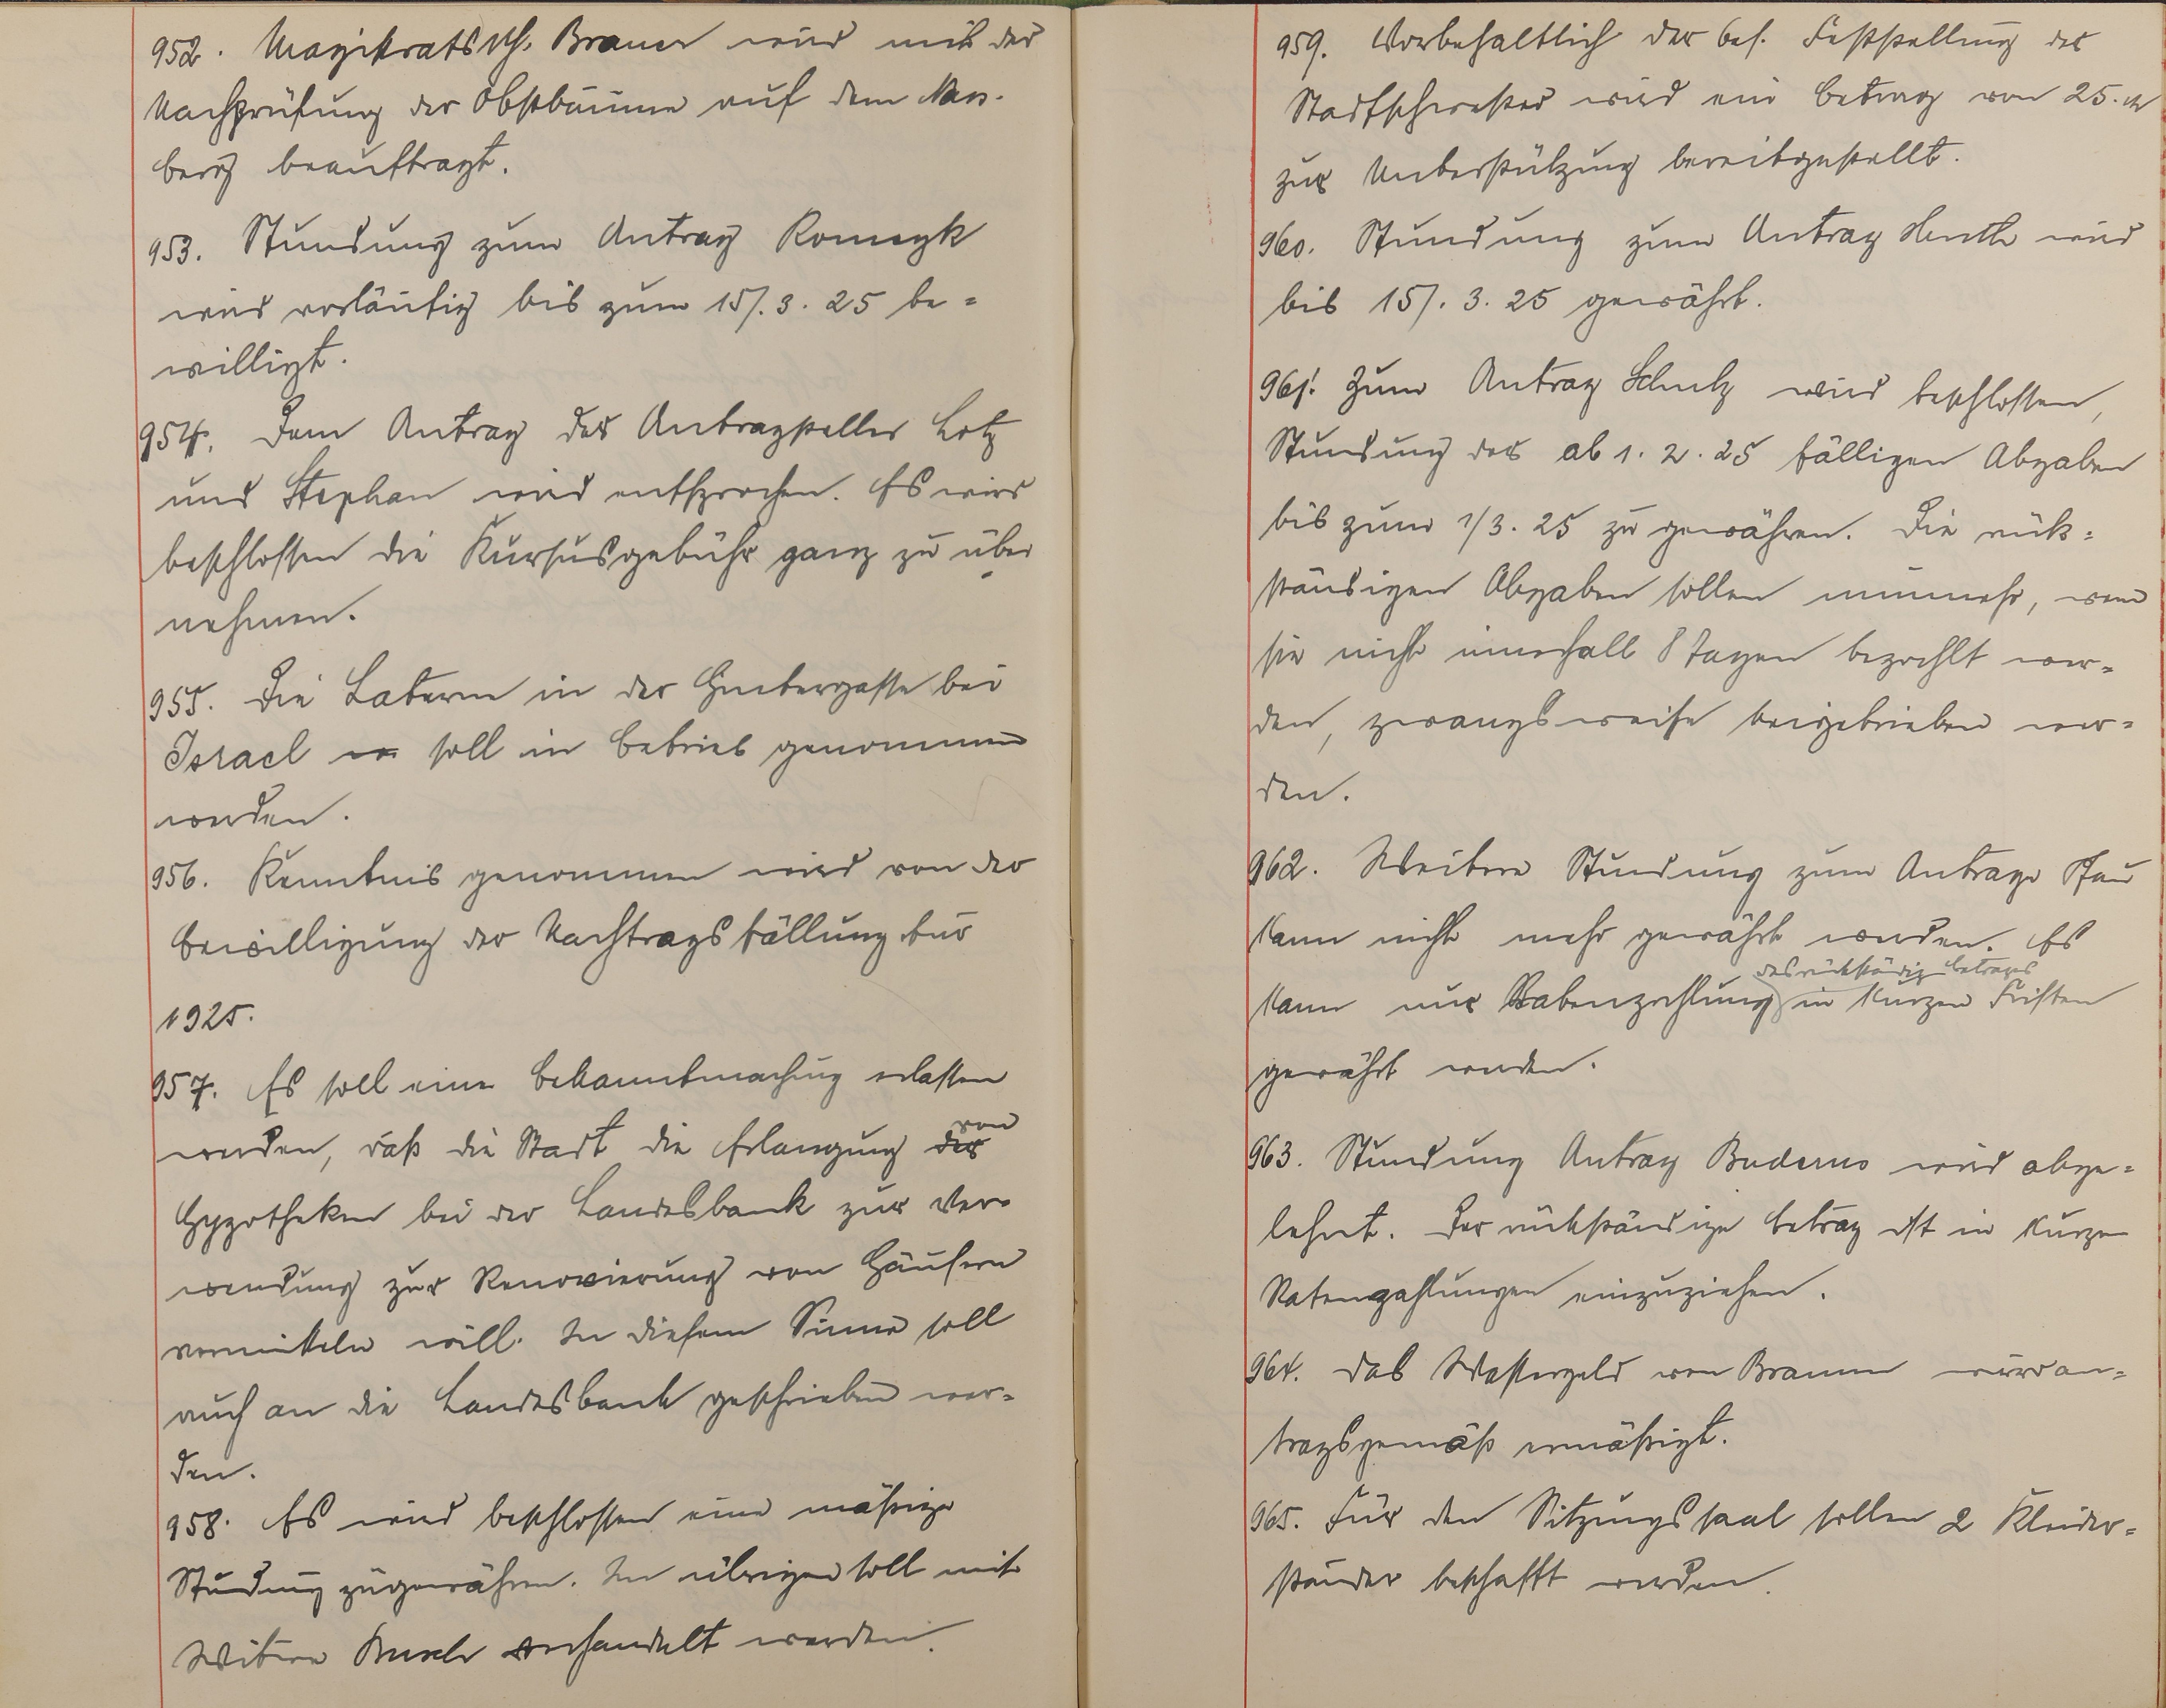 952. Magistratssch. Braun wird mit der
Nachprüfung der Obstbäume auf dem
berg beauftragt.
953. Stundung zum Antrag Romeyk
wird vorläufig bis zum 15/. 3. 25 be=
willigt.
954. Dem Antrag der Antragsteller Lotz
und Stephan wird entsprochen. Es wird
beschlossen die Kursusgebühr ganz zu über
nehmen.
955. Die Laterne in der Hintergasse bei
Israel soll in Betrieb genommen
werden.
956. Kenntnis genommen wird von der
Bewilligung der Nachtragsfällung für
1925.
957. Es soll eine Bekanntmachung erlassen
werden, daß die Stadt die Erlangung der von
Hypotheken bei der Landesbank zur Ver=
wendung zur Renovierung von Häusern
vermitteln will. In diesem Sinne soll
auch an die Landesbank geschrieben wer=
den.
958. Es wird beschlossen eine mäßige
Stundung zu gewähren. Im übrigen soll mit
Witwe Busch verhandelt werden.
959. Vorbehaltlich der bes. Feststellung der
Stadtschwester wird ein Betrag von 25.M
zur Unterstützung bereitgestellt.
960. Stundung zum Antrag wird
bis 15/. 3. 25 gewährt.
961. Zum Antrag Schulz wird beschlossen,
Stundung der ab 1. 2. 25 fälligen Abgaben
bis zum 1/3. 25 zu gewähren. Die rück=
ständigen Abgaben sollen nunmehr, wenn
sie nicht innerhalb 8 Tagen bezahlt wer=
den, zwangsweise beigetrieben wer=
den.
962. Weitere Stundung zum Antrage Pfau
kann nicht mehr gewährt werden. Es
kann nur Ratenzahlung des rückständig. Betrages in kurzen Fristen
gewährt werden.
963. Stundung Antrag Buderus wird abge=
lehnt. Der rückständige Betrag ist in kurzen
Ratenzahlungen einzuziehen.
964. Das Wassergeld von Braun wird an=
tragsgemäß ermäßigt.
965. Für den Sitzungssaal sollen 2 Kleider=
ständer beschafft werden.